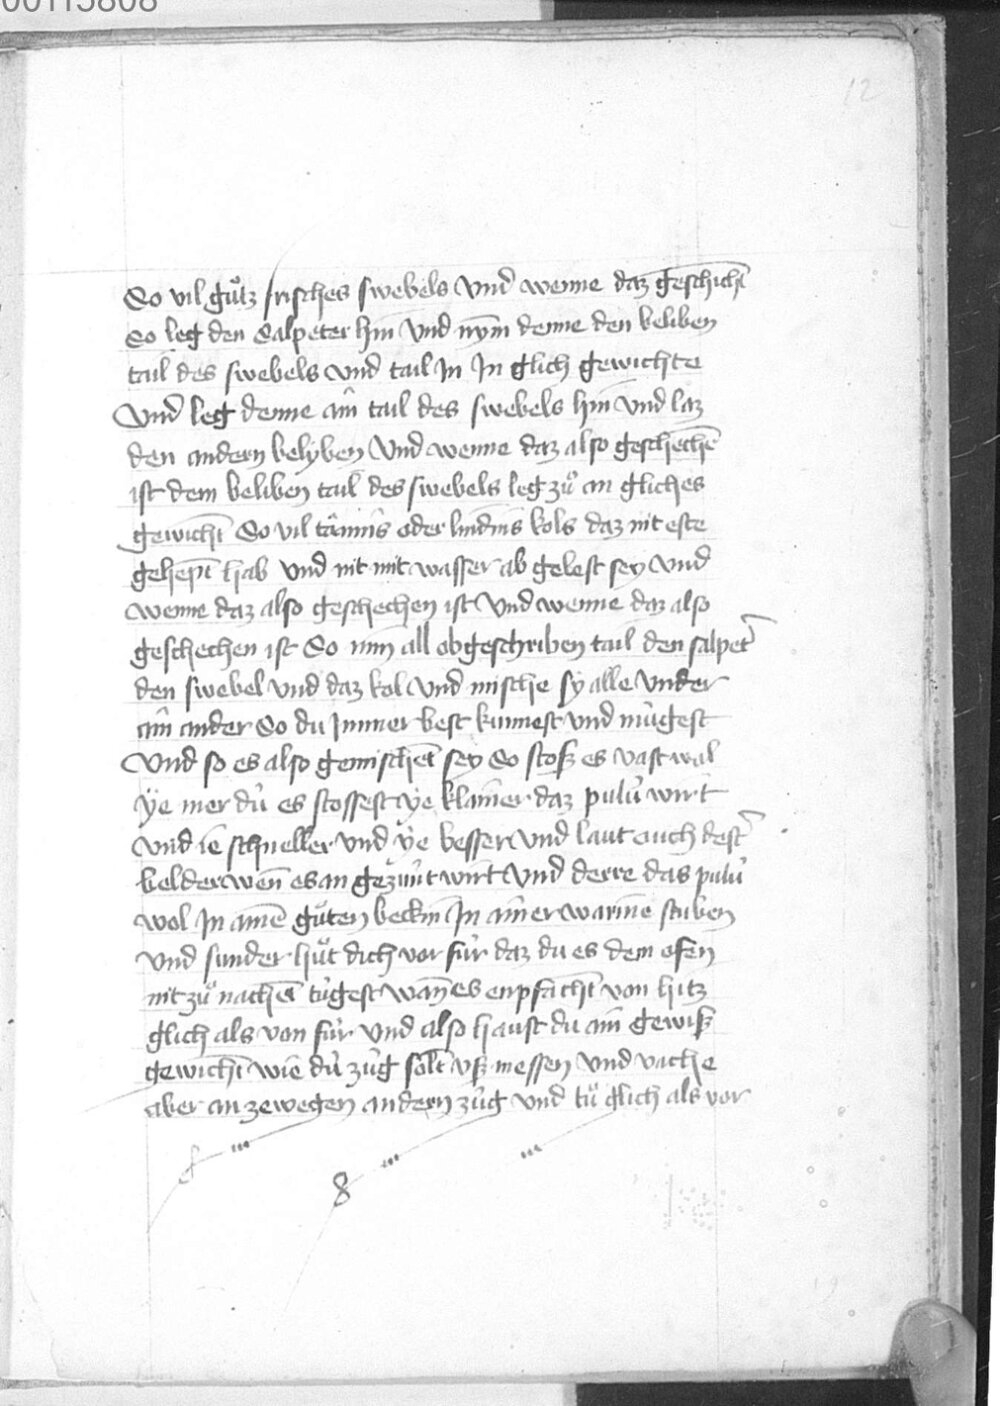 00115808
12
So vil guͦtz frisches swebels vnd wenne daz geschicht
So leg den Salpeter hin vnd nym denne den beliben
tail des swebels vnd tail In In glich gewichte
Vnd leg denne ain tail des swebels hin vnd laz
den andern belyben Vnd wenne daz also geschechē
ist dem beliben tail des swebels leg zuͦ an gliches
gewicht So vil tännis oder lindins kols daz nit este
gehept hab vnd nit mit wasser ab gelest sey vnd
wenne daz also geschechen ist Vnd wenne daz also
geschechen ist So nim all obgeschriben tail den salpet͛
den swebel vnd daz kol vnd mische sy alle vnder
ain ander So du Immer best kunnest vnd mügest
Vnd so es also gemischet sey So stoß es vast wol
ÿe mer dü es stossest ÿe klainer daz pulu͛ wirt
vnd ie schneller vnd ÿe besser vnd laut ouch dest͛
belder wen̄ es an gezünt wirt Vnd derre das pulu͛
wol In ainē guͦten beckin In ainer warme stuben
vnd sunder huͤt dich vor für daz du es dem ofen
nit zuͦ nachet tügest wan̄ es enpfacht von hitz
glich als von für Vnd also haust du ain gewiß
gewicht wie dü züg solt vß messen vnd vache
aber an zewegen andern züg vnd tuͦ glich als vor
8